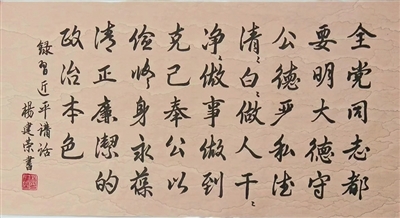 全党同志都
要明大德守
公德严私德
清〻白〻做人干〻
净〻做事做到
克己奉公以
俭修身永葆
清正廉潔的
政治本色
録習近平講话
楊建荣書